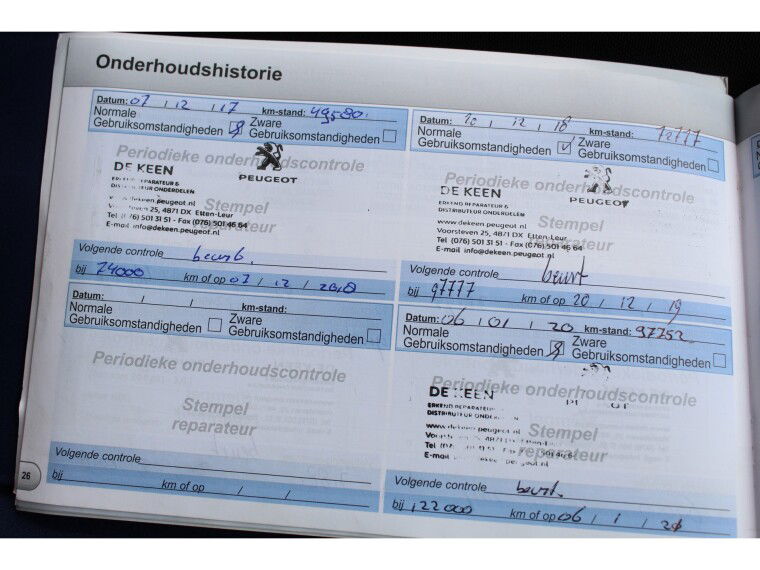 Onderhoudshistorie
Datum: 07 / 12 / 17 km-stand: 49580
Normale Gebruiksomstandigheden Zware Gebruiksomstandigheden
Periodieke onderhoudscontrole
PEUGEOT
DE KEEN
ERKEND REPARATEUR &
DISTRIBUTEUR ONDERDELEN
Stempel
reparateur
www.dekeen.peugeot.nl
Voorsteven 25, 4871 DX Etten-Leur
Tel (076) 501 31 51 - Fax (076) 501 46 64
E-mail info@dekeen.peugeot.nl
Volgende controle beurt.
bij 74000 km of op 07 / 12 / 2018
Datum: / / km-stand:
Normale Gebruiksomstandigheden Zware Gebruiksomstandigheden
Periodieke onderhoudscontrole
Stempel
reparateur
Volgende controle
bij km of op / /
26
Datum: 20 / 12 / 18 km-stand: 72777
Normale Gebruiksomstandigheden Zware Gebruiksomstandigheden
Periodieke onderhoudscontrole
PEUGEOT
DE KEEN
ERKEND REPARATEUR &
DISTRIBUTEUR ONDERDELEN
Stempel
reparateur
www.dekeen.peugeot.nl
Voorsteven 25, 4871 DX Etten-Leur
Tel (076) 501 31 51 - Fax (076) 501 46 64
E-mail info@dekeen.peugeot.nl
Volgende controle beurt
bij 97777 km of op 20 / 12 / 19
Datum: 06 / 01 / 20 km-stand: 97752
Normale Gebruiksomstandigheden Zware Gebruiksomstandigheden
Periodieke onderhoudscontrole
DE KEEN
ERKEND REPARATEUR
DISTRIBUTEUR ONDERDELEN
Stempel
reparateur
www.dekeen.peugeot.nl
E-mail
Volgende controle beurt.
bij 122000 km of op 06 / 1 / 21